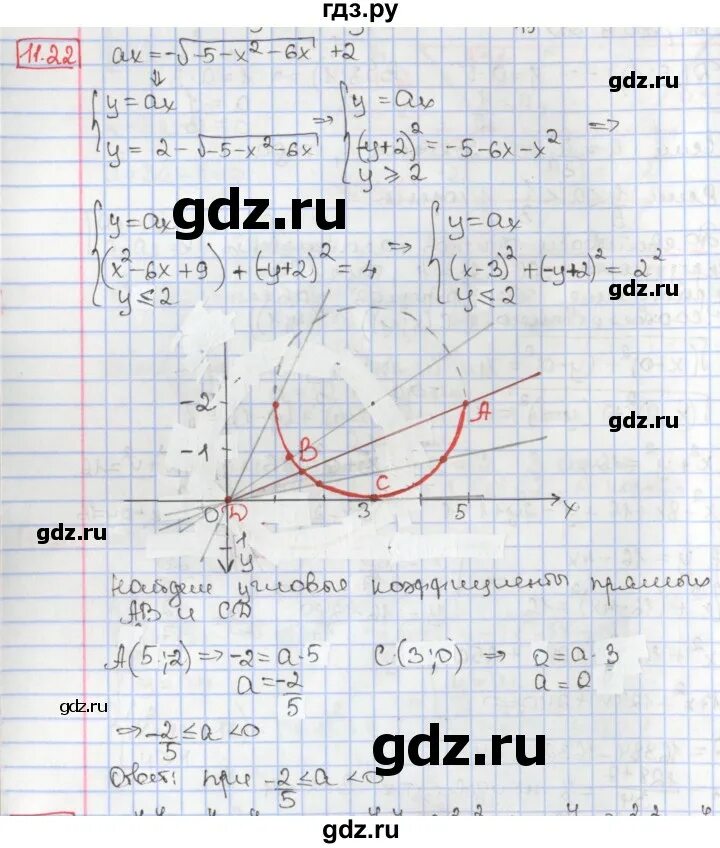 гдз.ру
11.22 ax = -√-5-x²-6x +2
⇓
{y = ax
y = 2 - √-5-x²-6x ⇒ {y = ax
(-y+2)² = -5-6x-x² ⇒
y ⩾ 2
gdz.ru
gdz.ru
{y = ax
(x²-6x+9) + (-y+2)² = 4 ⇒ {y = ax
y ≤ 2
(x-3)² + (-y+2)² = 2²
y ≤ 2
gdz.ru
-2
A
-1
B
C
0 D 3 5 x
1
y
gdz.ru
gdz.ru
Найдем угловые коэффициенты прямых
AB и CD
A(5;-2) ⇒ -2 = a·5 C(3;0) ⇒ 0 = a·3
a = -2/5 a = 0
gdz.ru
⇒ -2/5 ≤ a < 0
gdz.ru
Ответ: при -2/5 ≤ a < 0
gdz.ru